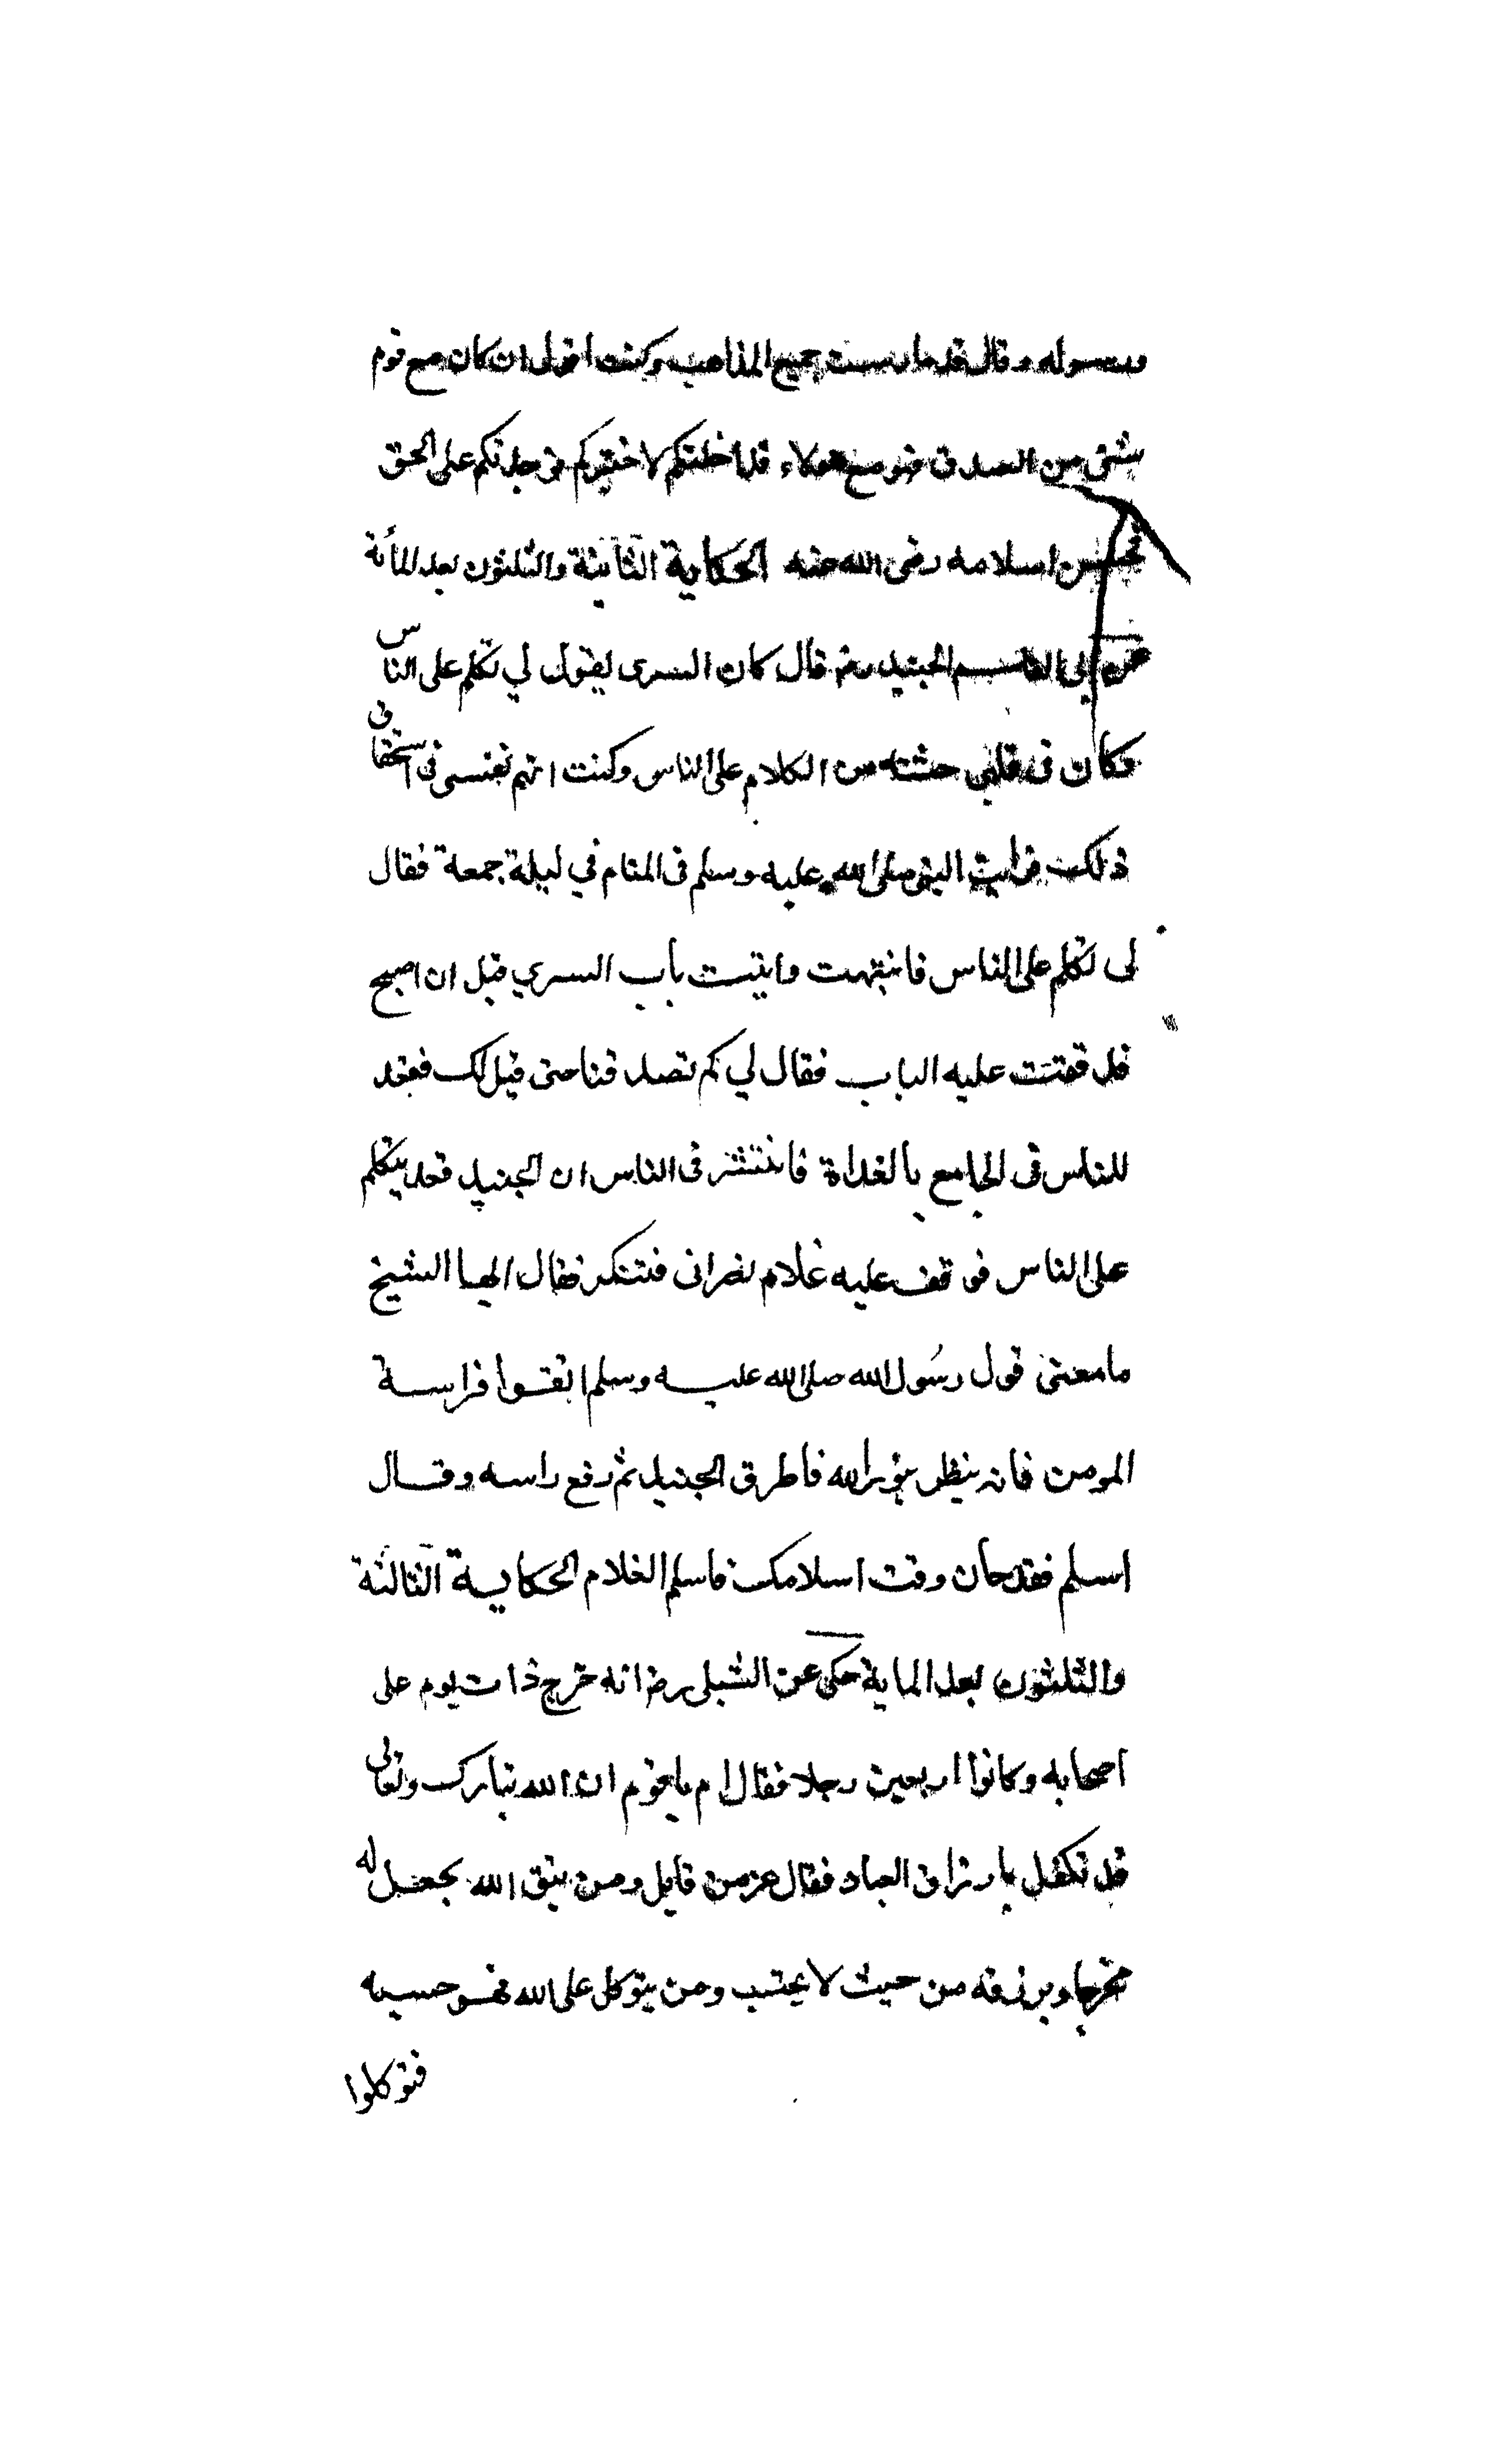 ورسوله وقال قد مارست جميع المذاهب وكنت اقول ان كان مع قوم
شئ من الصدق فهو مع هولاء فداخلتكم لاختبركم فوجدتكم على الحق
فحسن اسلامه رضى الله عنه الحكاية الثانية والثلثون بعد المأنة
عن ابي القاسم الجنيد رضـ قال كان السرى يقول لي تكلم على الناس
فكان فى قلبي حشمة من الكلام على الناس وكنت اتهم نفسى فى استحقاقى
ذلك فرايت النبى صلى الله عليه وسلم فى المنام في ليلة جمعة فقال
لى تكلم على الناس فانتبهت واتيت باب السري قبل ان اصبح
فدققت عليه الباب فقال لي لم تصدقنا حتى قيل لك فقعد
للناس فى الجامع بالغداة فانتشر فى الناس ان الجنيد قعد يتكلم
على الناس فوقف عليه غلام نصرانى متنكر فقال ايها الشيخ
ما معنى قول رسُول الله صلى الله عليه وسلم اتقوا فراسة
المومن فانه ينظر بنور الله فاطرق الجنيد ثم رفع راسه وقال
اسلم فقد حان وقت اسلامك فاسلم الغلام الحكاية الثالثة
والثلثون بعد الماية حكى عن الشبلى رضـ انه خرج ذات يوم على
اصحابه وكانوا اربعين رجلا فقال لهم يا قوم ان الله تبارك وتعالى
قد تكفل بارزاق العباد فقال عز من قايل ومن يتق الله يجعل له
مخرجا ويرزقه من حيث لا يحتسب ومن يتوكل على الله فهو حسبه
فتوكلوا